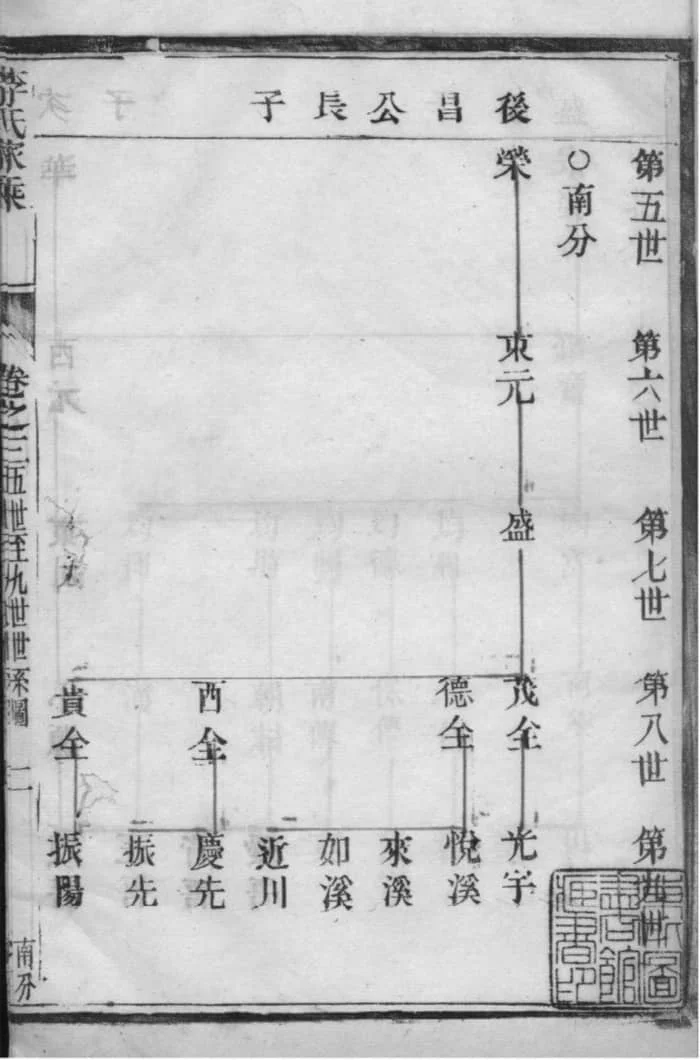 第五世
第六世
第七世
第八世
第九世
○南分
後昌公長子
榮
東元
盛
茂全
德全
酉全
貴全
光宇
悅溪
來溪
如溪
近川
慶先
振先
振陽
李氏家乘
卷之三五世至九世世系圖
二
南分